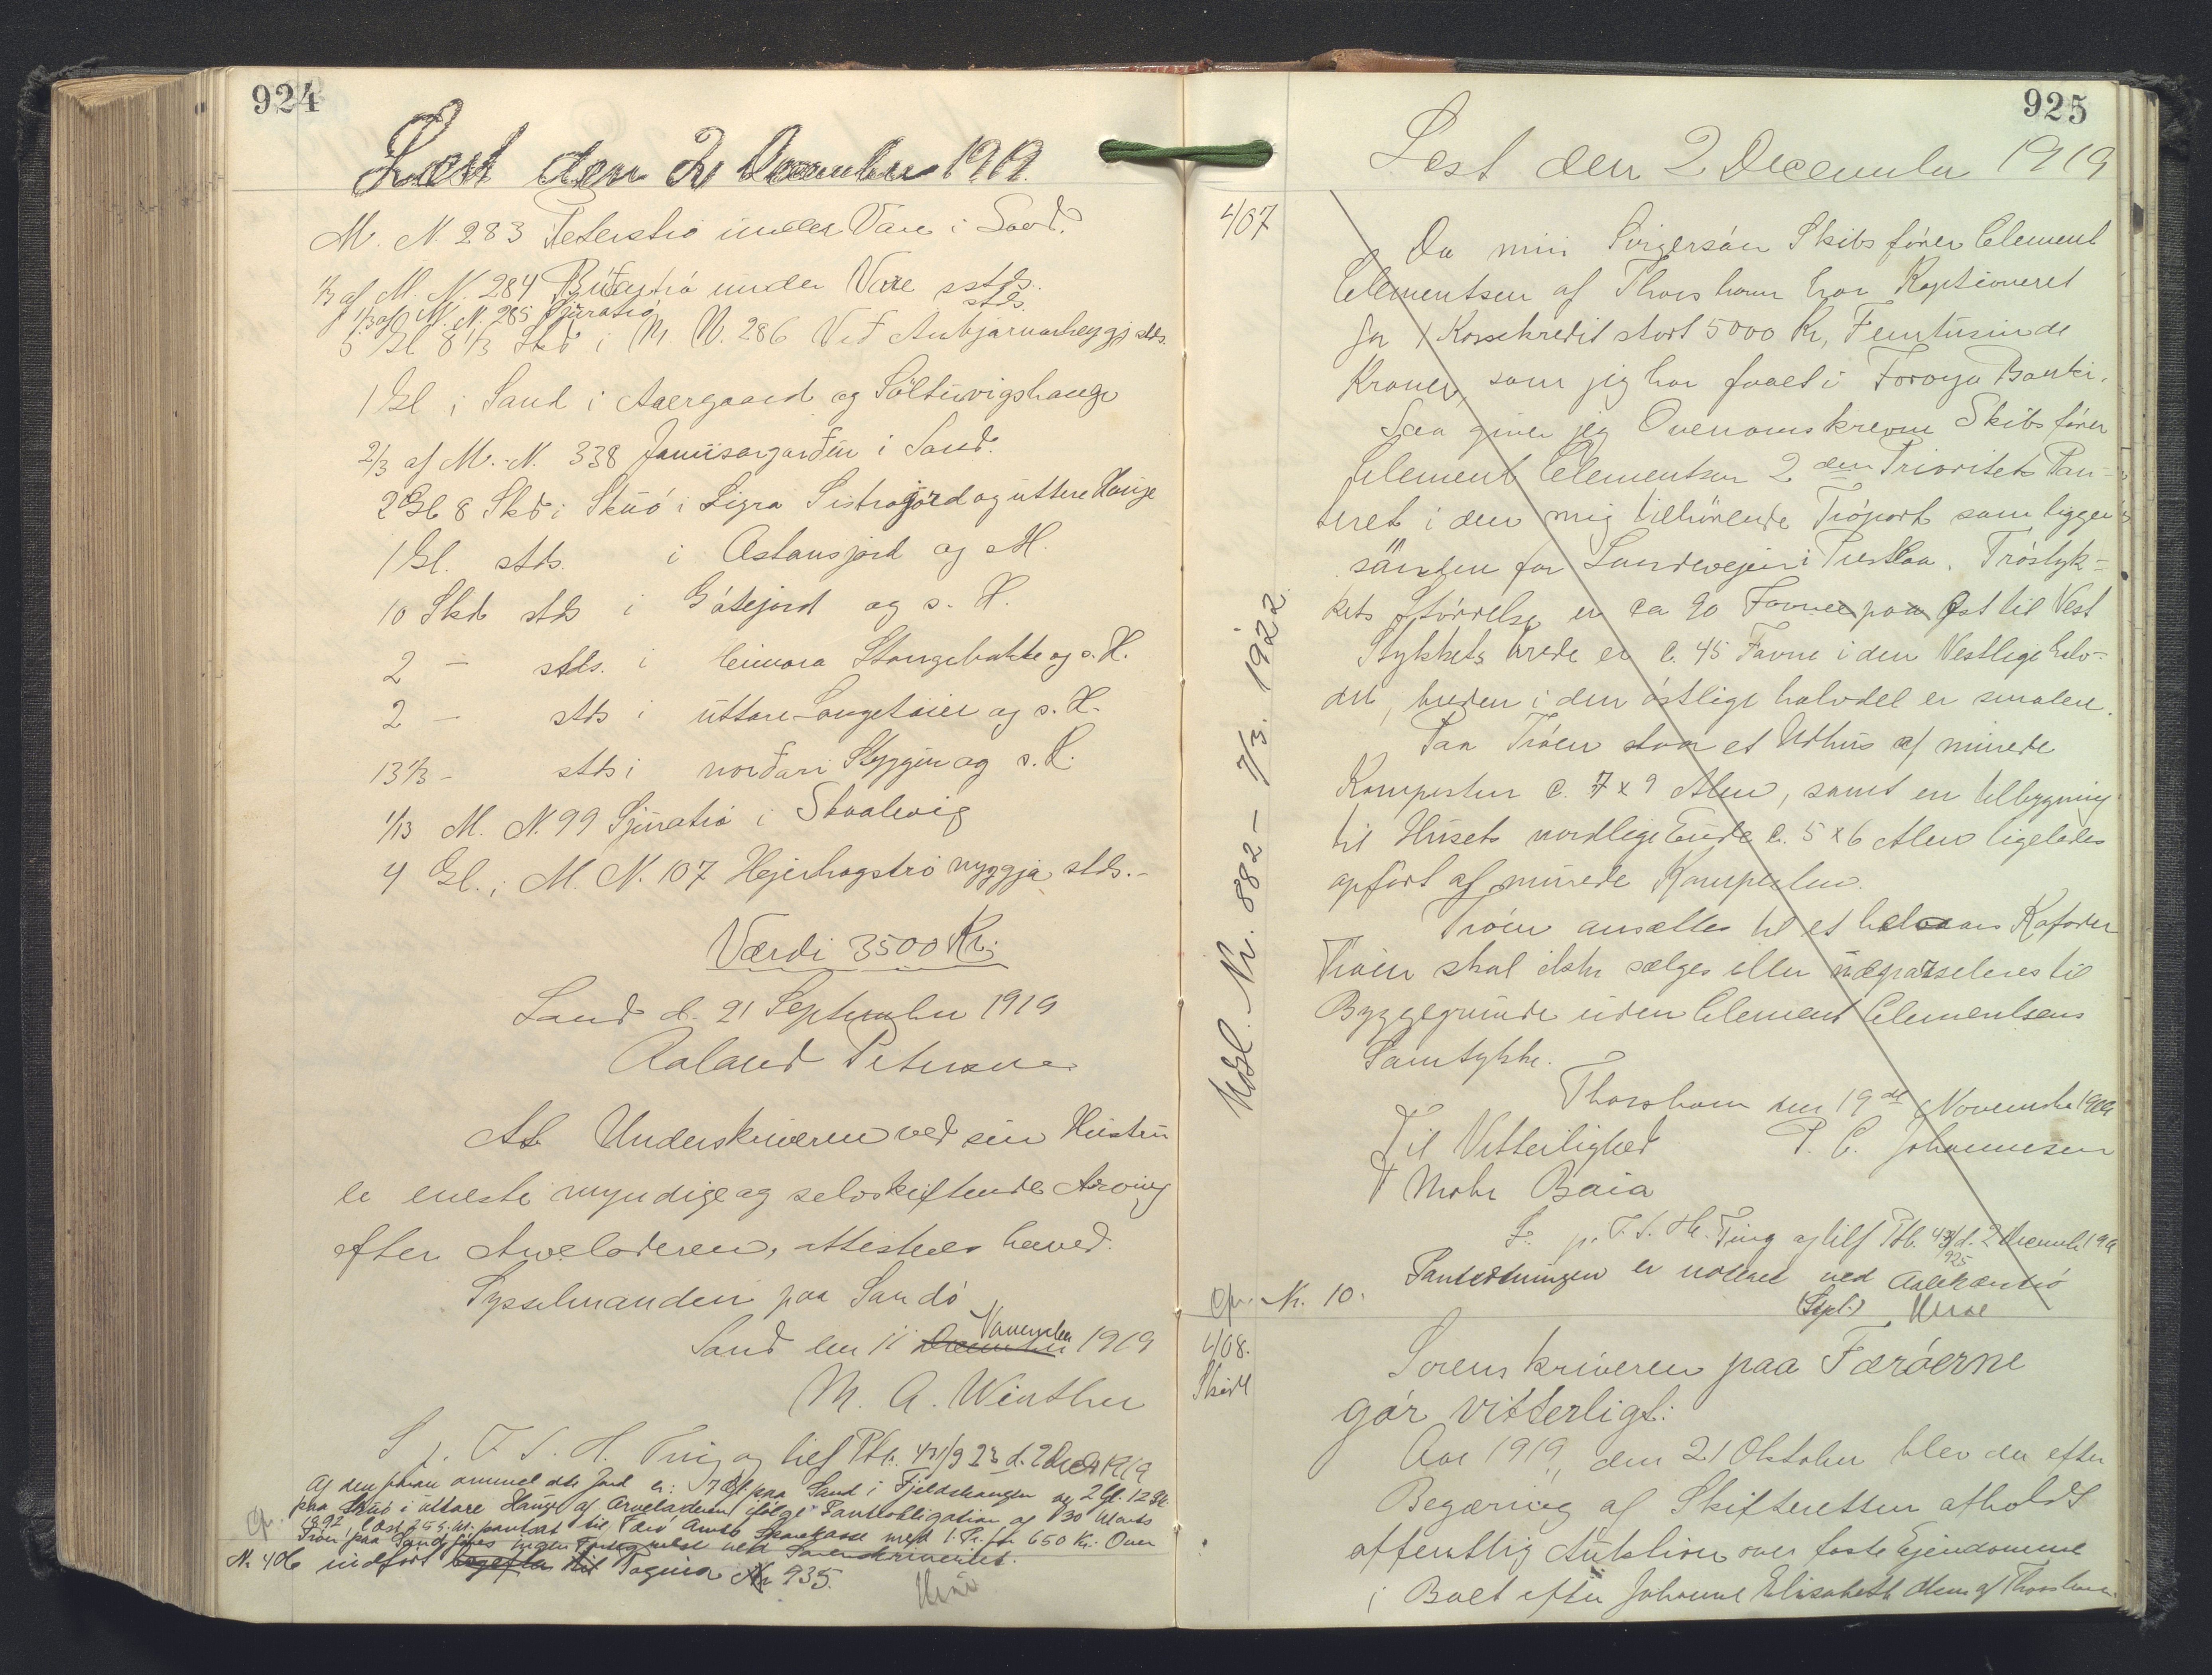 924
Læst den 2 December 1919.
M. N. 283 Peterstró under Vare i Sand.
1/3 af M. N. 284 Búðartró under Vare sstds.
1/3 af M. N. 285 Sjúratró stds.
5 Gl 8 1/3 Skd i M N. 286 Við Anbjarnarheyggj stds.
1 Gl i Sand i Aaergaard og Søltuvigshauge
2/3 af M. N. 338 Janusargarðin i Sand.
2 Gl 8 Skd i Skuó i Ligra Sistragjørd og uttere Hauge
1 Gl. stds. i Østansjord og H.
10 Skd stds i Gótejord og s. H.
2 — stds. i Heimara Stongebakke og s. H.
2 — stds i uttare Langetaier og s. H.
13 1/3 — stds i norðari Styggin og s. H.
1/13 M. N. 99 Sjúratró i Skaalevig
4 Gl. i M. N. 107 Hejerhagstró nyggja stds.-
Værdi 3500 Kr.
Sand d. 21 September 1919
Roland Petersen
At Underskriveren ved sin Hustru
er eneste myndige og selvskiftende Arving
efter Arveladeren, attesteres herved.
Sysselmanden paa Sandó
Sand den 11 December November 1919
M. A. Winther
L p. T. S. H. Ting og tilf Ptb. 431/923 d. 2 Decbr 1919
Af den foran ommeldte Jord er: 7 Gl. paa Sand i Fjeldshaugen og 2 Gl. 12 Sk.
paa Skuó i uttare Hauge af Arveladeren ifølge Pantobligation af 30 Marts
1892, læst 25 s. M. pantsat til Færø Amts Sparekasse med 1. Pr. for 650 Kr. Over
Troen paa Sand føres ingen Fortegnelse ved Sorenskriveriet.
N. 406 indført bagefter til Pagina N 935.
925
Læst den 2 December 1919
4/07
Da min Svigersøn Skibsfører Clement
Clementsen af Thorshavn har Kaptioneret
for 1 Kassekredit stort 5000 Kr, Femtusinde
Kroner, som jeg har faaet i Føroya Banki,
Saa giver jeg Ovennævnskrevne Skibsfører
Clement Clementsen 2den Prioritets Pan-
teret i den mig tilhørende Trópart som ligger
sønden for Landevejen i Trestlaa. Tróstyk-
kets Størrelse er ca 90 Favne paa Øst til Vest
Stykkets brede er c. 45 Favne i den Vestlige halv-
del, breden i den østlige halvdel er smalere.
Paa Tróen staar et Udhus af murede
Kampesten c. 7 x 9 Alen, samt en tilbygning
til Husets nordlige Ende c. 5 x 6 Alen ligeledes
opført af murede Kampesten.
Tróen ansættes til et helaars Kofoder
Tróen skal ikke sælges eller udparselleres til
Byggegrunde uden Clement Clementsens
Samtykke.
Thorshavn den 19de November 1919
Til Vitterlighed P. C. Johannesen
Mohr Baia
L. p. T. S. H. Ting og tilf Ptb. 43/925 d. 2 Decemb 1919
Panteretningen er noteret ved
N. 10.
Udsl. Nr. 882 — 7/3. 1922.
4/08.
Skøde
Sorenskriveren paa Færóerne
gör vitterligt:
Aar 1919, den 21 Oktober blev der efter
Begæring af Skifteretten afholdt
offentlig Auktion over faste Ejendomme
i Boet efter Johanne Elisabeth Olsen af Thorshavn